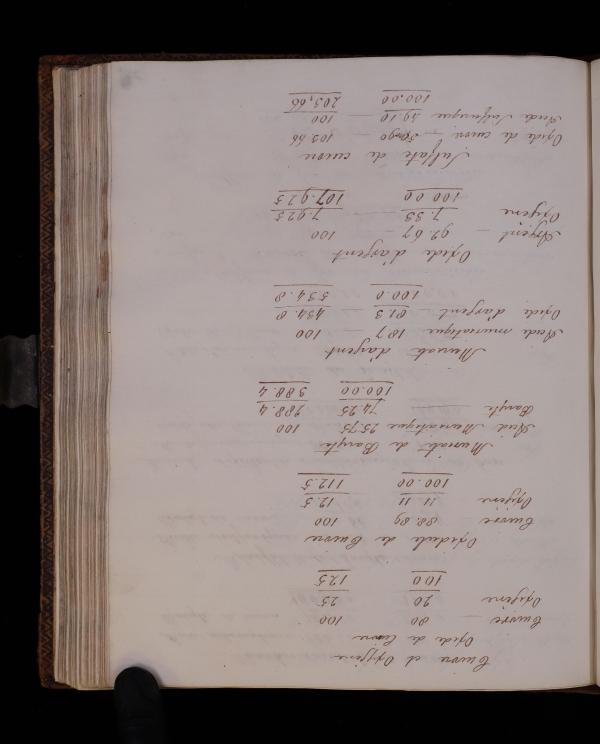 Cuivre et Oxigène
Oxide de Cuivre
Cuivre — 80 100
Oxigène 20 25
100 125
Oxidule de Cuivre
Cuivre 88.89 100
Oxigène 11.11 12.5
100.00 112.5
Muriate de Baryte
Acid Muriatique 25.75 100
Baryte — 74.25 288.4
100.00 388.4
Muriate d'argent
Acide muriatique 18.7 — 100
Oxide d'argent — 81.3 — 434.8
100.0 534.8
Oxide d'argent
Argent — 92.67 — 100
Oxigene 7.33 — 7.925
100.00 107.925
Sulfate de cuivre
Oxide de cuivre — 50.90 — 103.66
Acide Sulfurique 49.10 — 100
100.00 203,66